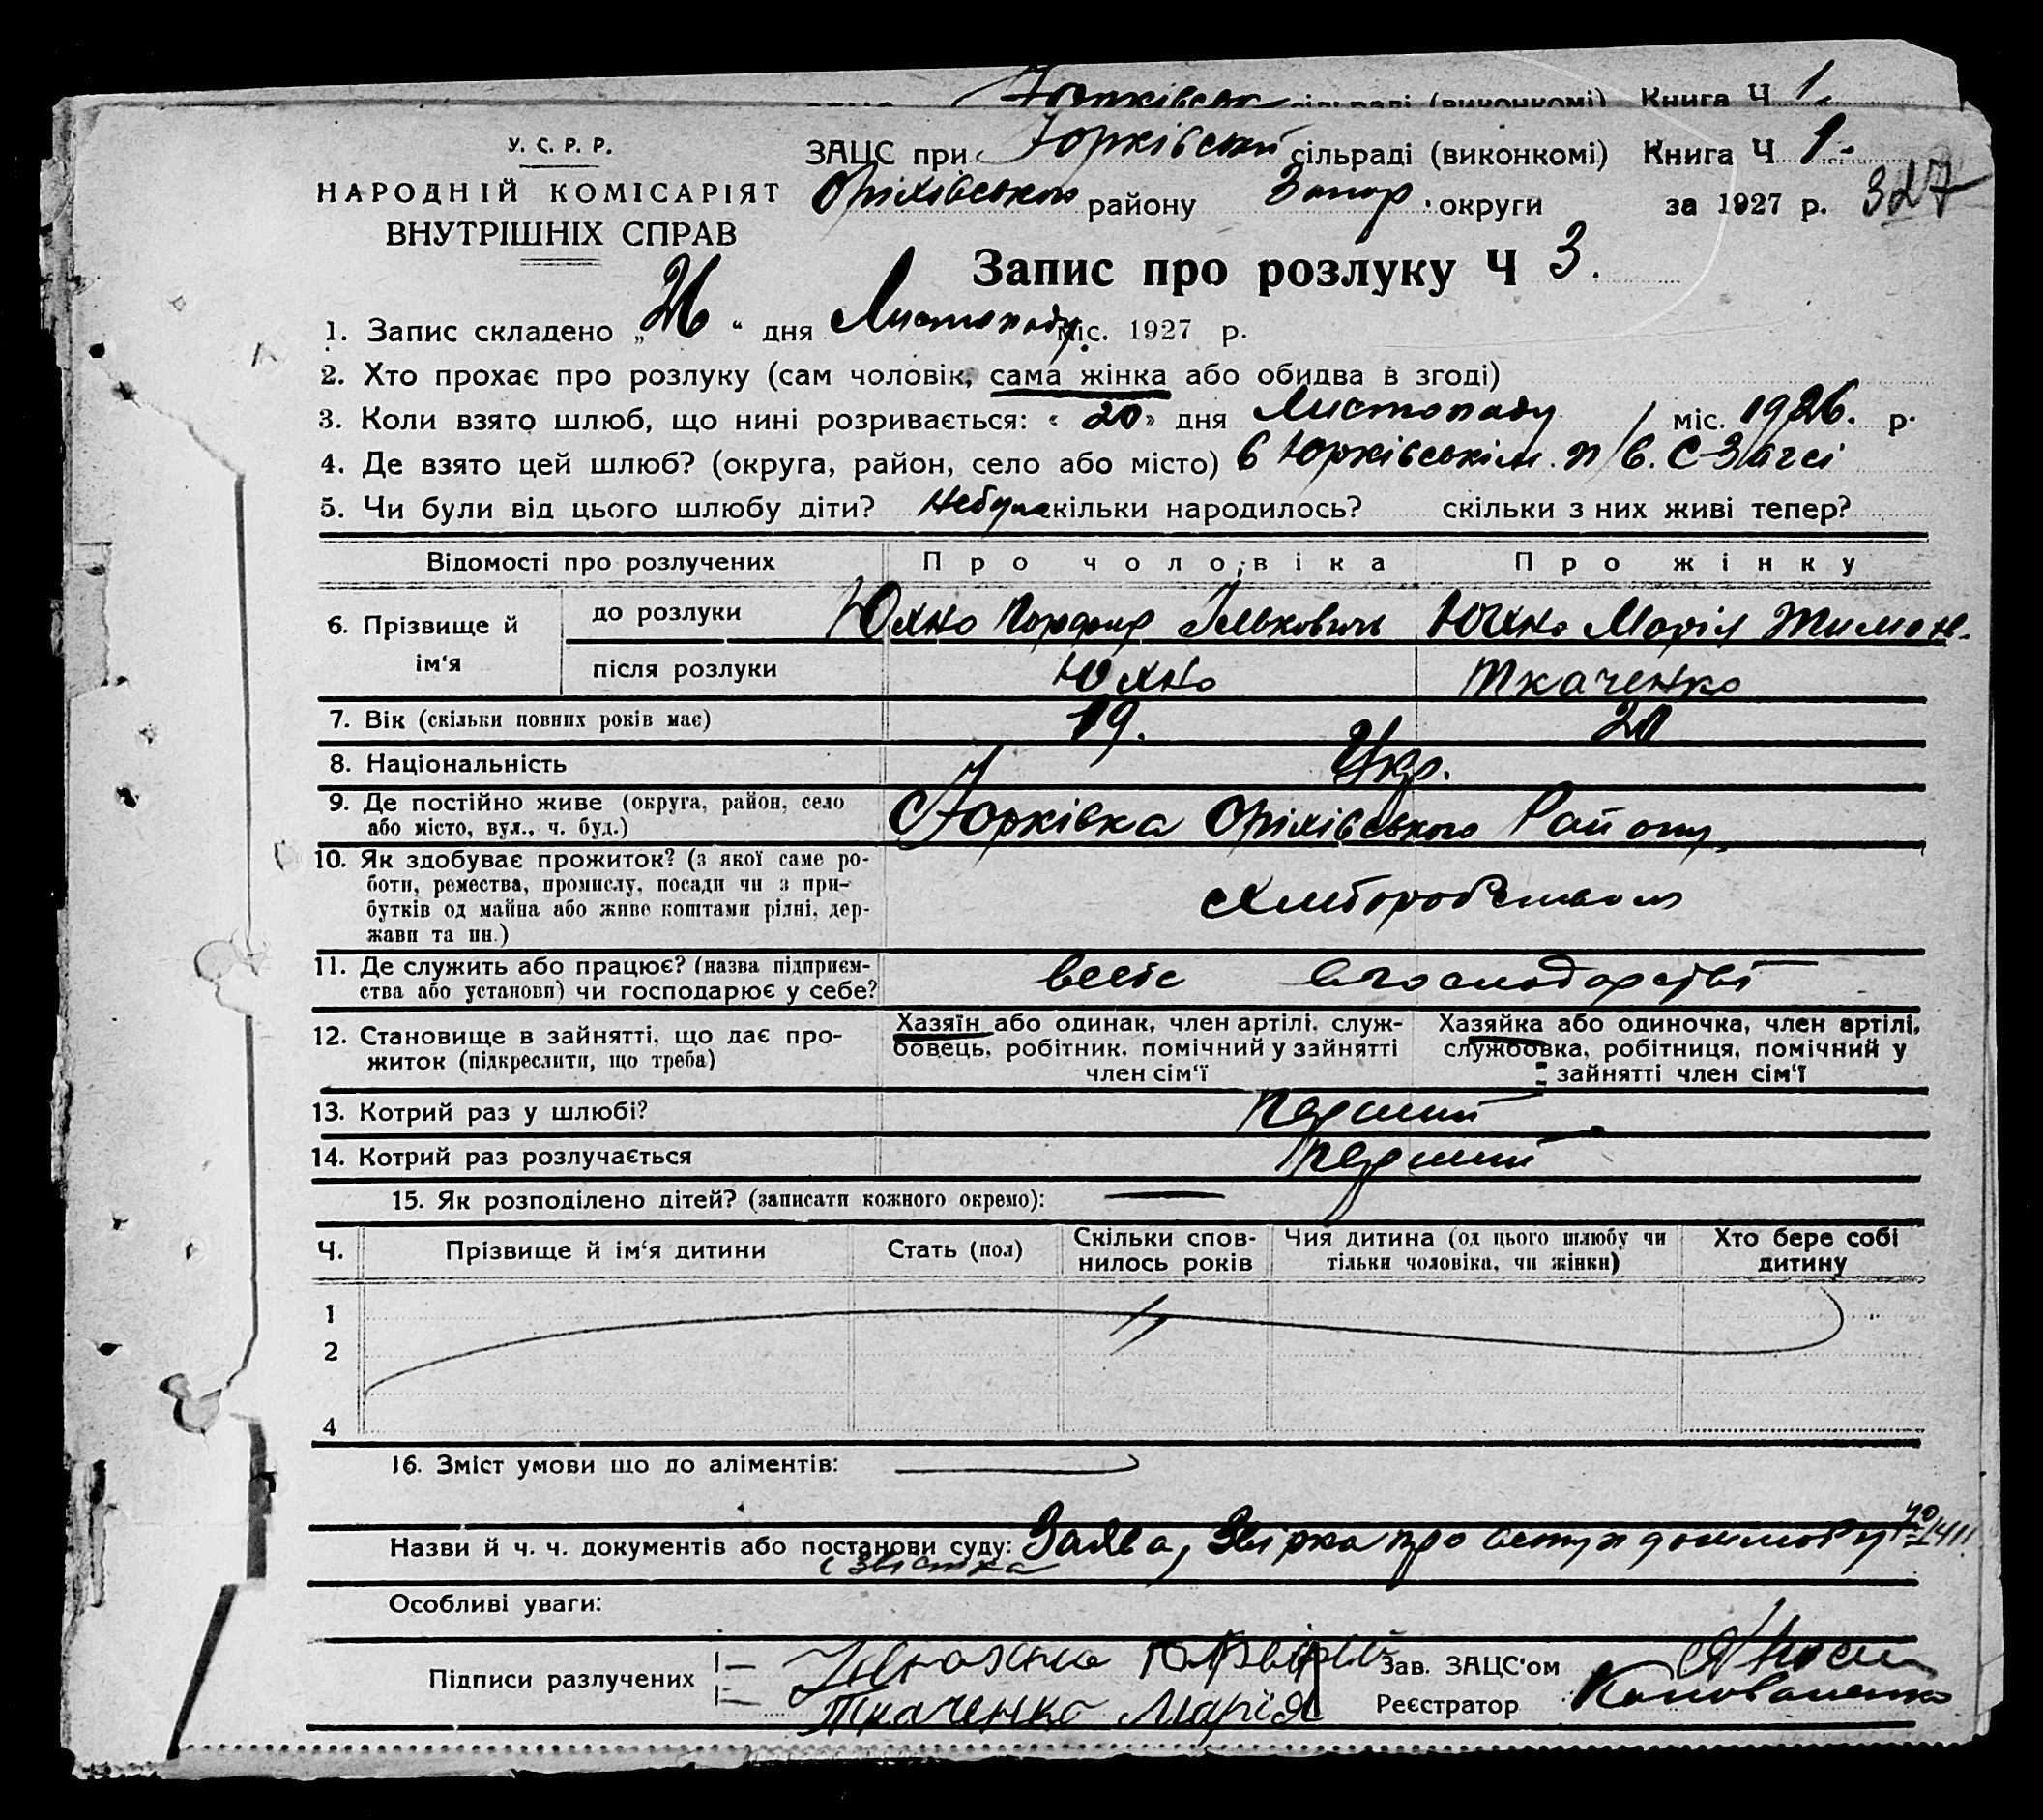 сільраді (виконкомі) Книга Ч 1.
У. С. Р. Р.
ЗАЦС при Юрківській сільраді (виконкомі) Книга Ч 1-
НАРОДНІЙ КОМІСАРІЯТ
Оріхівського району Запор. округи за 1927 р. 327
ВНУТРІШНІХ СПРАВ
Запис про розлуку Ч 3.
1. Запис складено „ “ дня Листопаду міс. 1927 р.
2. Хто прохає про розлуку (сам чоловік, сама жінка або обидва в згоді)
3. Коли взято шлюб, що нині розривається: « 20 » дня Листопаду міс. 1926. р.
4. Де взято цей шлюб? (округа, район, село або місто) в Юрківськім
5. Чи були від цього шлюбу діти? Небуло скільки народилось? скільки з них живі тепер?
Відомості про розлучених Про чоловіка Про жінку
6. Прізвище й ім‘я
до розлуки Юхно Ількович Юхно Марія Тимох.
після розлуки Юхно Ткаченко
7. Вік (скільки повних років має) 19. 20
8. Національність Укр.
9. Де постійно живе (округа, район, село
або місто, вул., ч. буд.) с Юрківка Оріхівського Району
10. Як здобуває прожиток? (з якої саме ро-
боти, ремества, промислу, посади чи з при-
бутків од майна або живе коштами рідні, дер-
жави та ин.)
хліборобством
11. Де служить або працює? (назва підприєм-
ства або установи) чи господарює у себе?
в господарстві
12. Становище в зайнятті, що дає про-
житок (підкреслити, що треба)
Хазяїн або одинак, член артілі, служ-
бовець, робітник, помічний у зайнятті
член сім‘ї
Хазяйка або одиночка, член артілі,
службовка, робітниця, помічний у
зайнятті член сім‘ї
13. Котрий раз у шлюбі? перший
14. Котрий раз розлучається перший
15. Як розподілено дітей? (записати кожного окремо): —
Ч. Прізвище й ім‘я дитини Стать (пол) Скільки спов-
нилось років Чия дитина (од цього шлюбу чи
тільки чоловіка, чи жінки) Хто бере собі
дитину
1
2
4
16. Зміст умови що до аліментів: —
Назви й ч. ч. документів або постанови суду: Заява, про вступ до шлюбу
Особливі уваги:
Підписи разлучених
Зав. ЗАЦС‘ом
Ткаченко Марія
Реєстратор